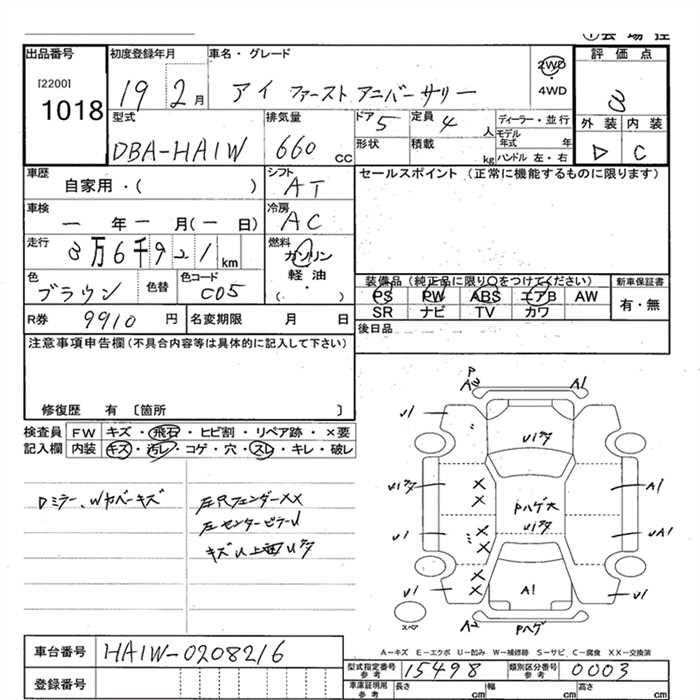 出品番号
[2200]
1018
初度登録年月
19 2月
車名・グレード
アイ ファースト アニバーサリー
2WD
4WD
評価点
3
外装 内装
D C
型式
DBA-HA1W
排気量
660 cc
ドア 5
定員 4 人
形状
積載 kg
ディーラー・並行
モデル年式 年
ハンドル 左・右
車歴
自家用・( )
シフト
AT
セールスポイント (正常に機能するものに限ります)
車検
一 年 一 月(一 日)
冷房
AC
走行
3万6千921km
燃料
ガソリン
軽油
( ・ )
色
ブラウン
色替
色コード
C05
装備品 (純正品に限り〇をつけてください)
PS PW ABS エアB AW
SR ナビ TV カワ
新車保証書
有・無
R券 9910 円
名変期限 月 日
後日品
注意事項申告欄 (不具合内容等は具体的に記入して下さい)
修復歴 有 〔箇所 〕
検査員
記入欄
FW キズ・飛石・ヒビ割・リペア跡・×要
内装 キズ・汚レ・コゲ・穴・スレ・キレ・破レ
Dミラー、Wカバーキズ
左Rフェンダーxx
左センターピラーU
キズU上面Uワタ
P
U1 A1 U1
U1ワタ
U1ワタ A1
Pハゲ大
U1ワタ
U1 UA1
U1 A1 U1
スペア
A2 Pハゲ
A-キズ E-エクボ U-凹み W-補修跡 S-サビ C-腐食 XX-交換済
車台番号 HA1W-0208216
登録番号
型式指定番号
参考
15498
類別区分番号
参考
0003
車庫証明用
参考
長さ cm 幅 cm 高さ cm